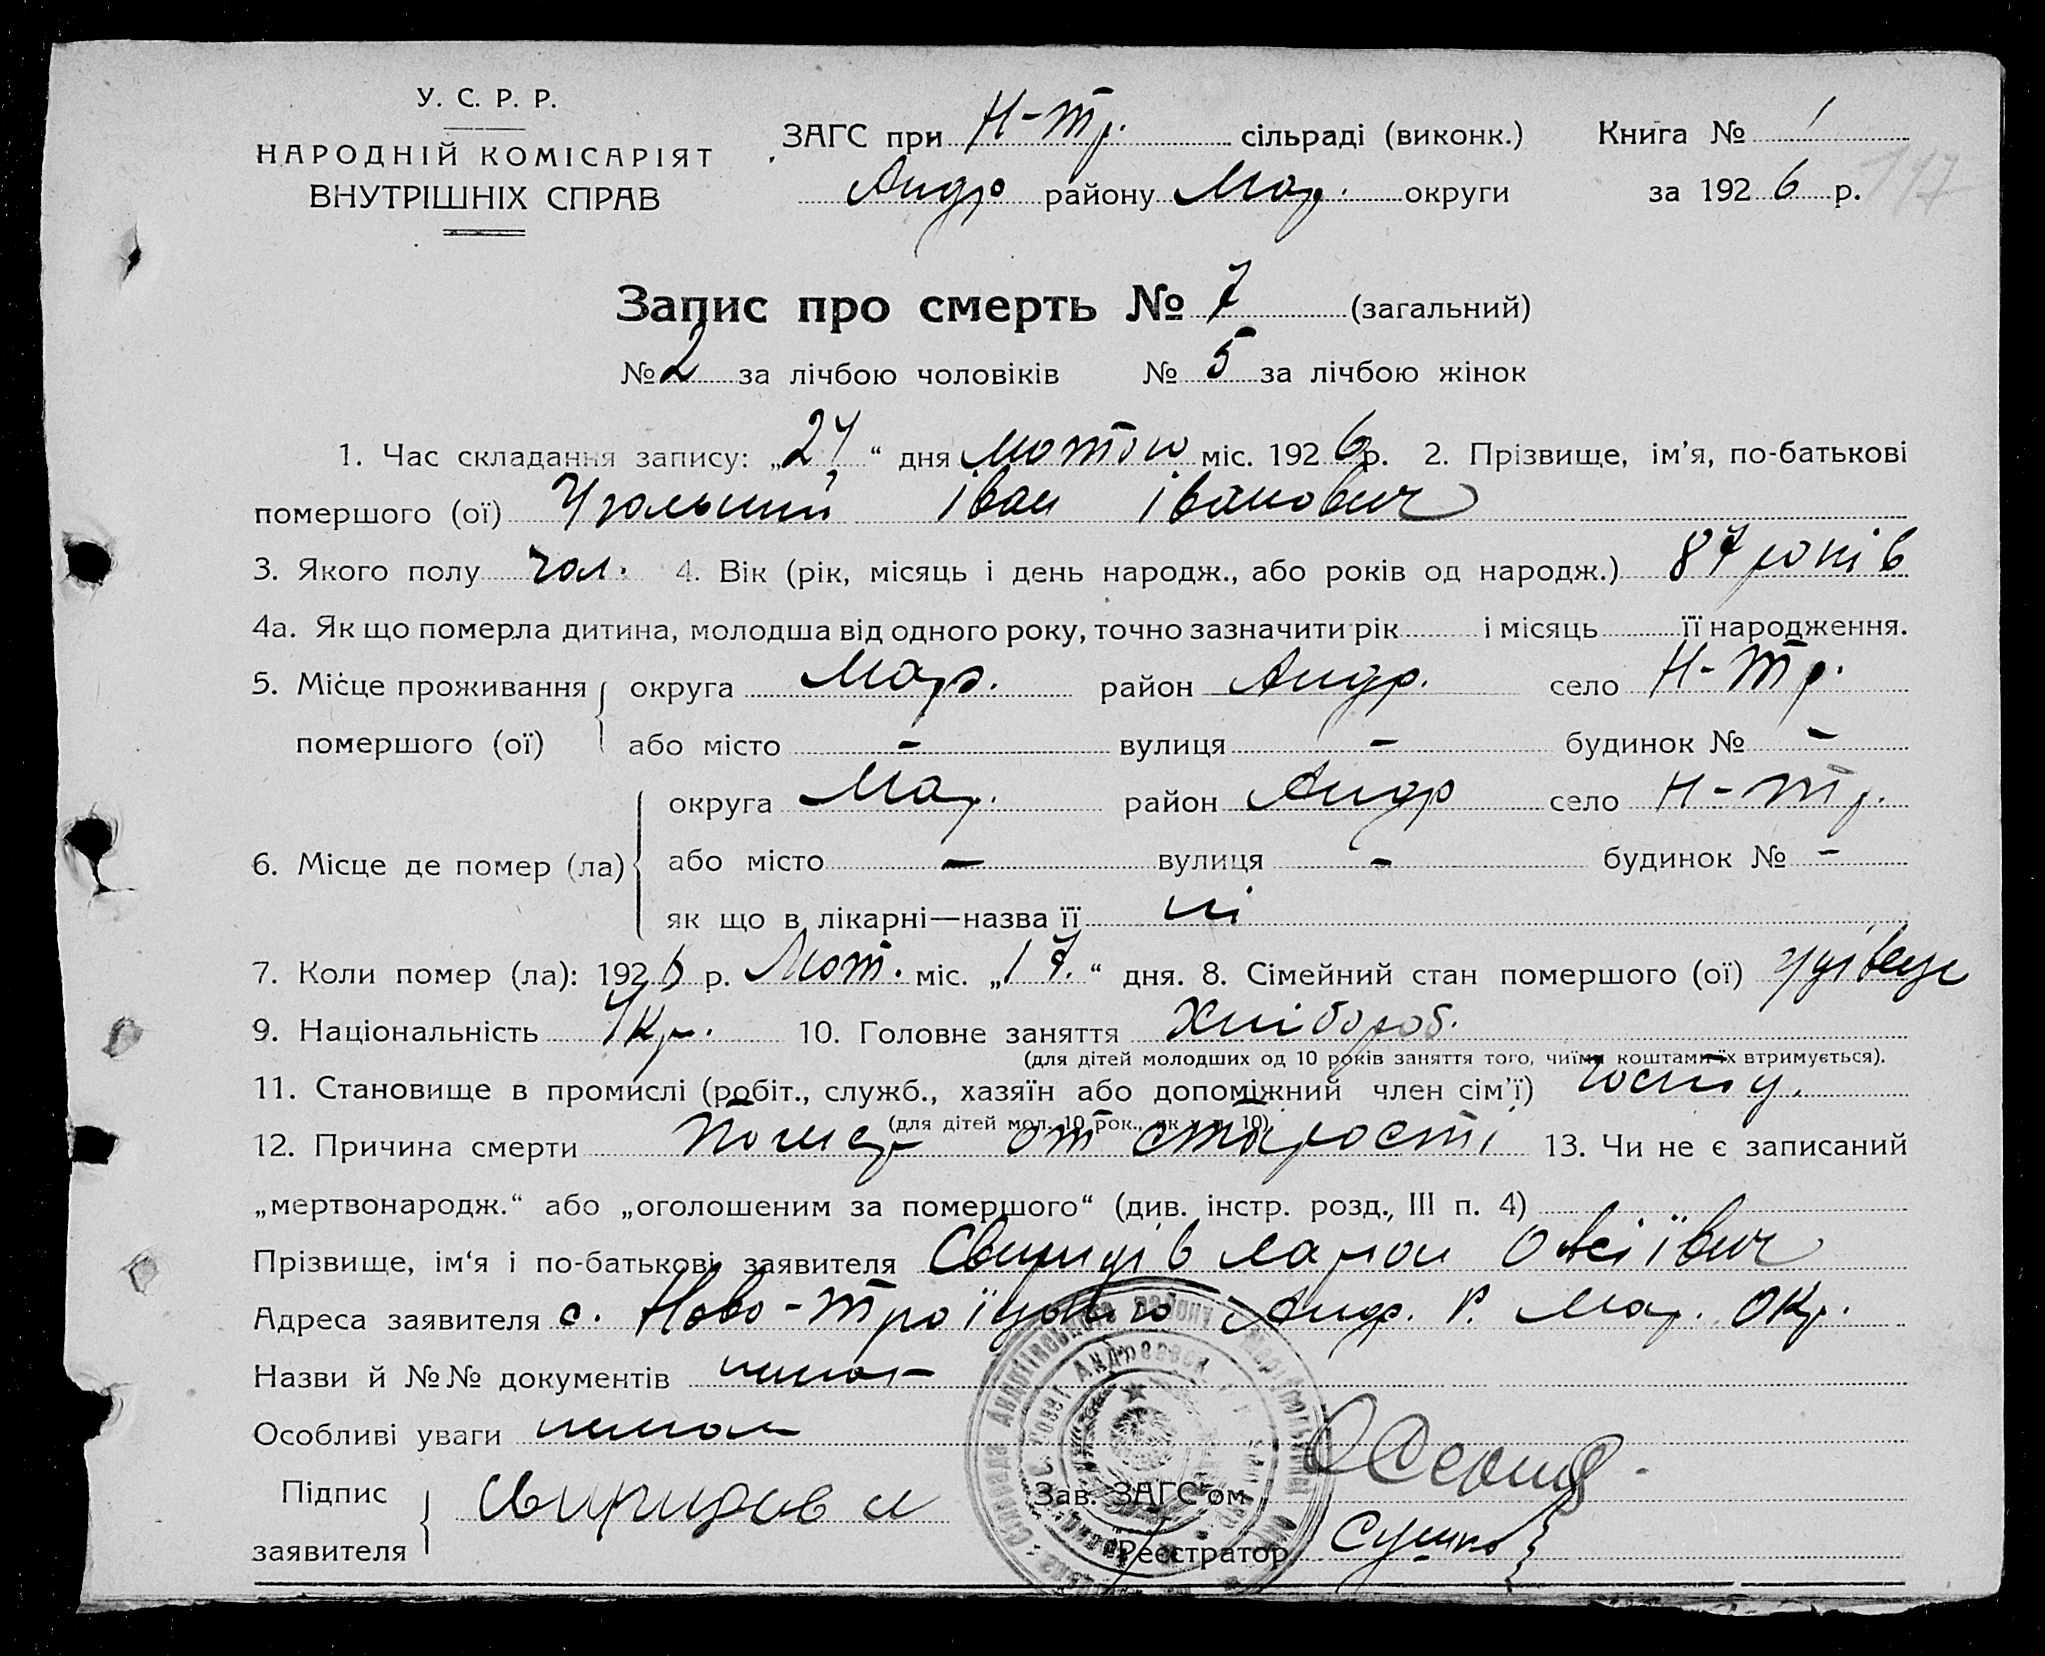 У. С. Р. Р.
НАРОДНІЙ КОМІСАРІЯТ
ВНУТРІШНІХ СПРАВ
ЗАГС при Н-Тр. сільраді (виконк.) Книга № 1
Андр району Мар. округи за 1926 р.
117
Запис про смерть № 7 (загальний)
№ 2 за лічбою чоловіків № 5 за лічбою жінок
1. Час складання запису: „24“ дня лютою міс. 1926 р. 2. Прізвище, ім'я, по-батькові
помершого (ої) Угольний іван іванович
3. Якого полу чол. 4. Вік (рік, місяць і день народж., або років од народж.) 87 років
4а. Як що померла дитина, молодша від одного року, точно зазначити рік і місяць її народження.
5. Місце проживання округа Мар. район Андр. село Н-Тр.
помершого (ої) або місто - вулиця - будинок № -
округа Мар. район Андр село Н-Тр.
6. Місце де помер (ла) або місто - вулиця - будинок № -
як що в лікарні—назва її ні
7. Коли помер (ла): 1926 р. Лют. міс. „17.“ дня. 8. Сімейний стан помершого (ої) удівець
9. Національність Укр. 10. Головне заняття Хлібороб.
(для дітей молодших од 10 років заняття того, чиїми коштами їх втримується).
11. Становище в промислі (робіт., служб., хазяїн або допоміжний член сім'ї)
(для дітей мол. 10 рок., як у п. 10)
12. Причина смерти Помер от старості 13. Чи не є записаний
„мертвонародж.“ або „оголошеним за помершого“ (див. інстр. розд., III п. 4)
Прізвище, ім'я і по-батькові заявителя Свиридів Ларион Овсіївич
Адреса заявителя с. Ново-Троїцького Андр. Р. Мар. Окр.
Назви й №№ документів немає
Особливі уваги немає
Підпис
заявителя Свиридов Л
Зав. ЗАГС'ом
Реєстратор Сушко